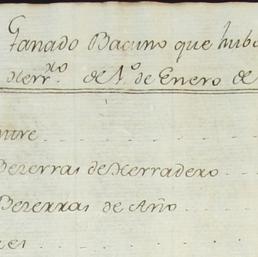 Ganado Bacuno que hubo
Herr.do de 1.o de Enero de
Bezerras de Herradero
Bezerras de Año